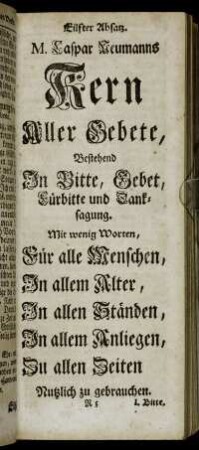 Eilfter Absatz.
M. Caspar Neumanns
Kern
Aller Gebete,
Bestehend
In Bitte, Gebet,
Fürbitte und Dank-
sagung.
Mit wenig Worten,
Für alle Menschen,
In allem Alter,
In allen Ständen,
In allem Anliegen,
Zu allen Zeiten
Nutzlich zu gebrauchen.
R 5 1. Bitte.